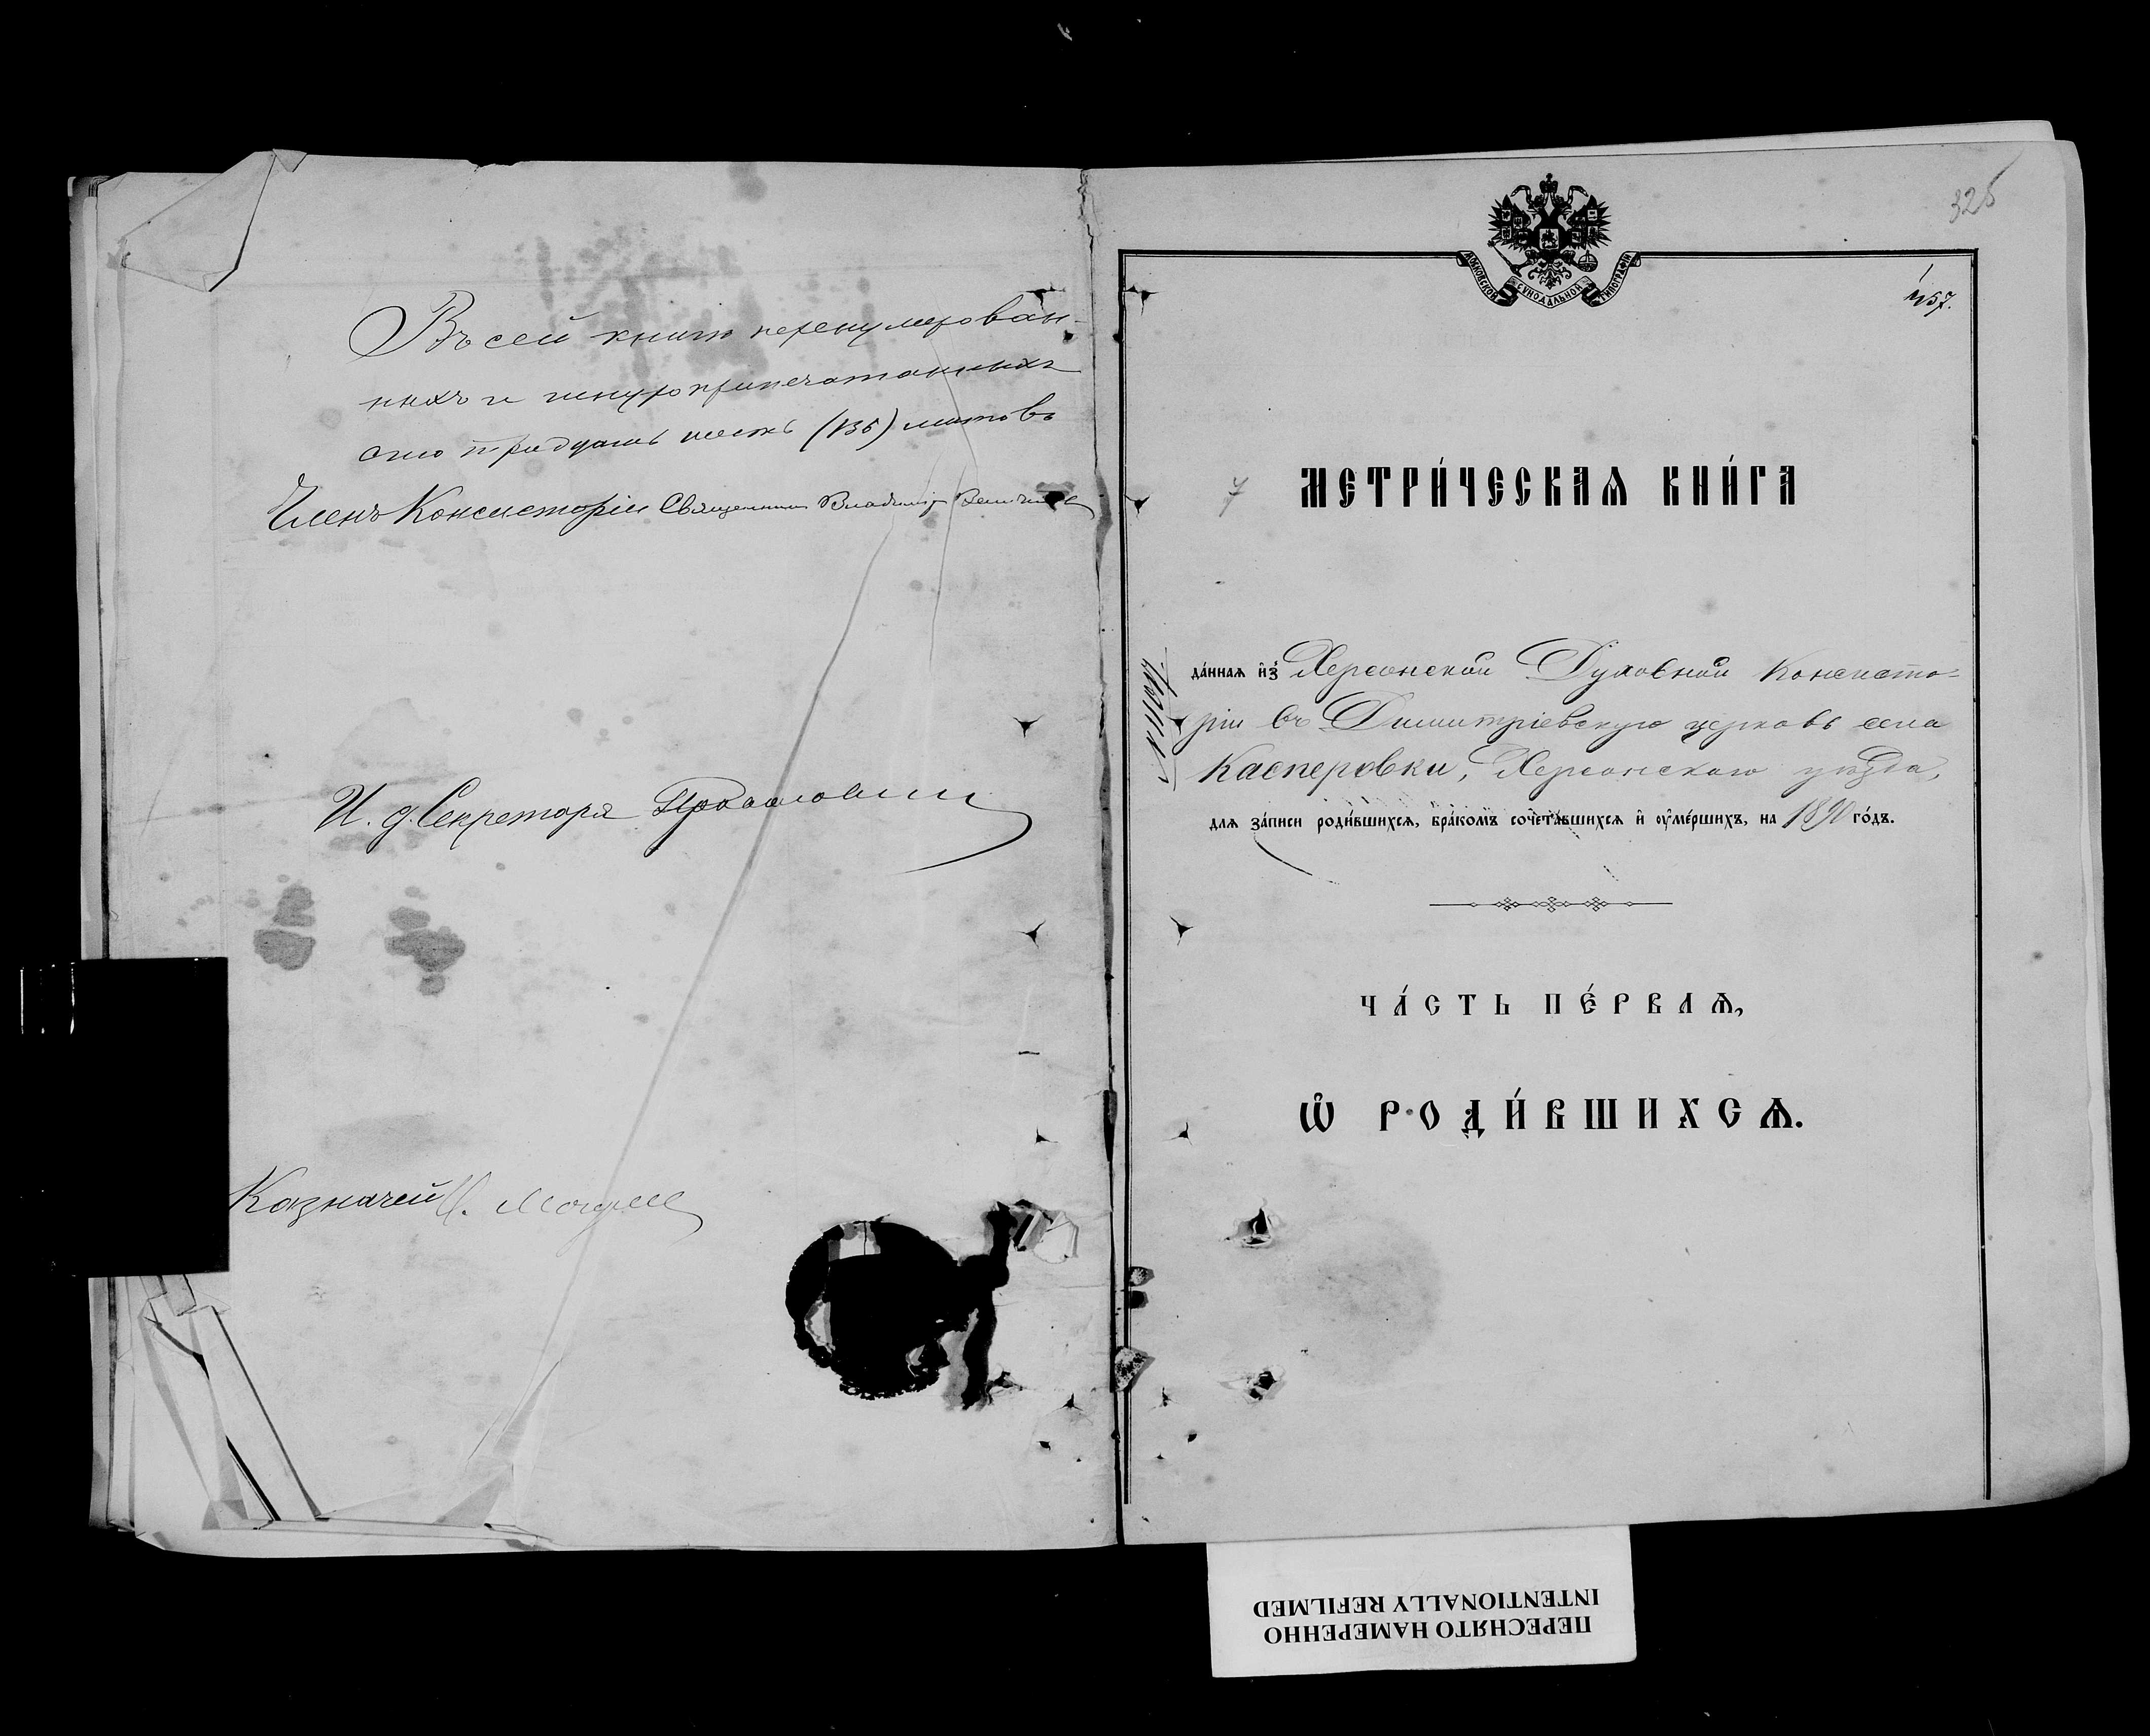 Въ сей книгѣ перенумерован-
ныхъ и шнуроприпечатанныхъ
сто тридцать шесть (136) листовъ
Членъ Консисторіи Священникъ Владимір
И. д. Секретаря
Казначей
325
МОСКОВСКОЙ СѴНОДАЛЬНОЙ ТИПОГРАФІИ
№57.
7
МЕТРИ́ЧЕСКАѦ КНИ́ГА
да́ннаѧ и҆з̾ Херсонской Духовной Консисто-
ріи въ Димитріевскую церковь села
Касперовки, Херсонскаго уѣзда,
длѧ за́писи роди́вшихсѧ, бра́комъ сочета́вшихсѧ и҆ ѹ҆ме́ршихъ, на 1890 го́дъ.
ЧА́СТЬ ПЕ́РВАѦ,
Ѡ҆ РОДИ́ВШИХСѦ.
ПЕРЕСНЯТО НАМЕРЕННО
INTENTIONALLY REFILMED